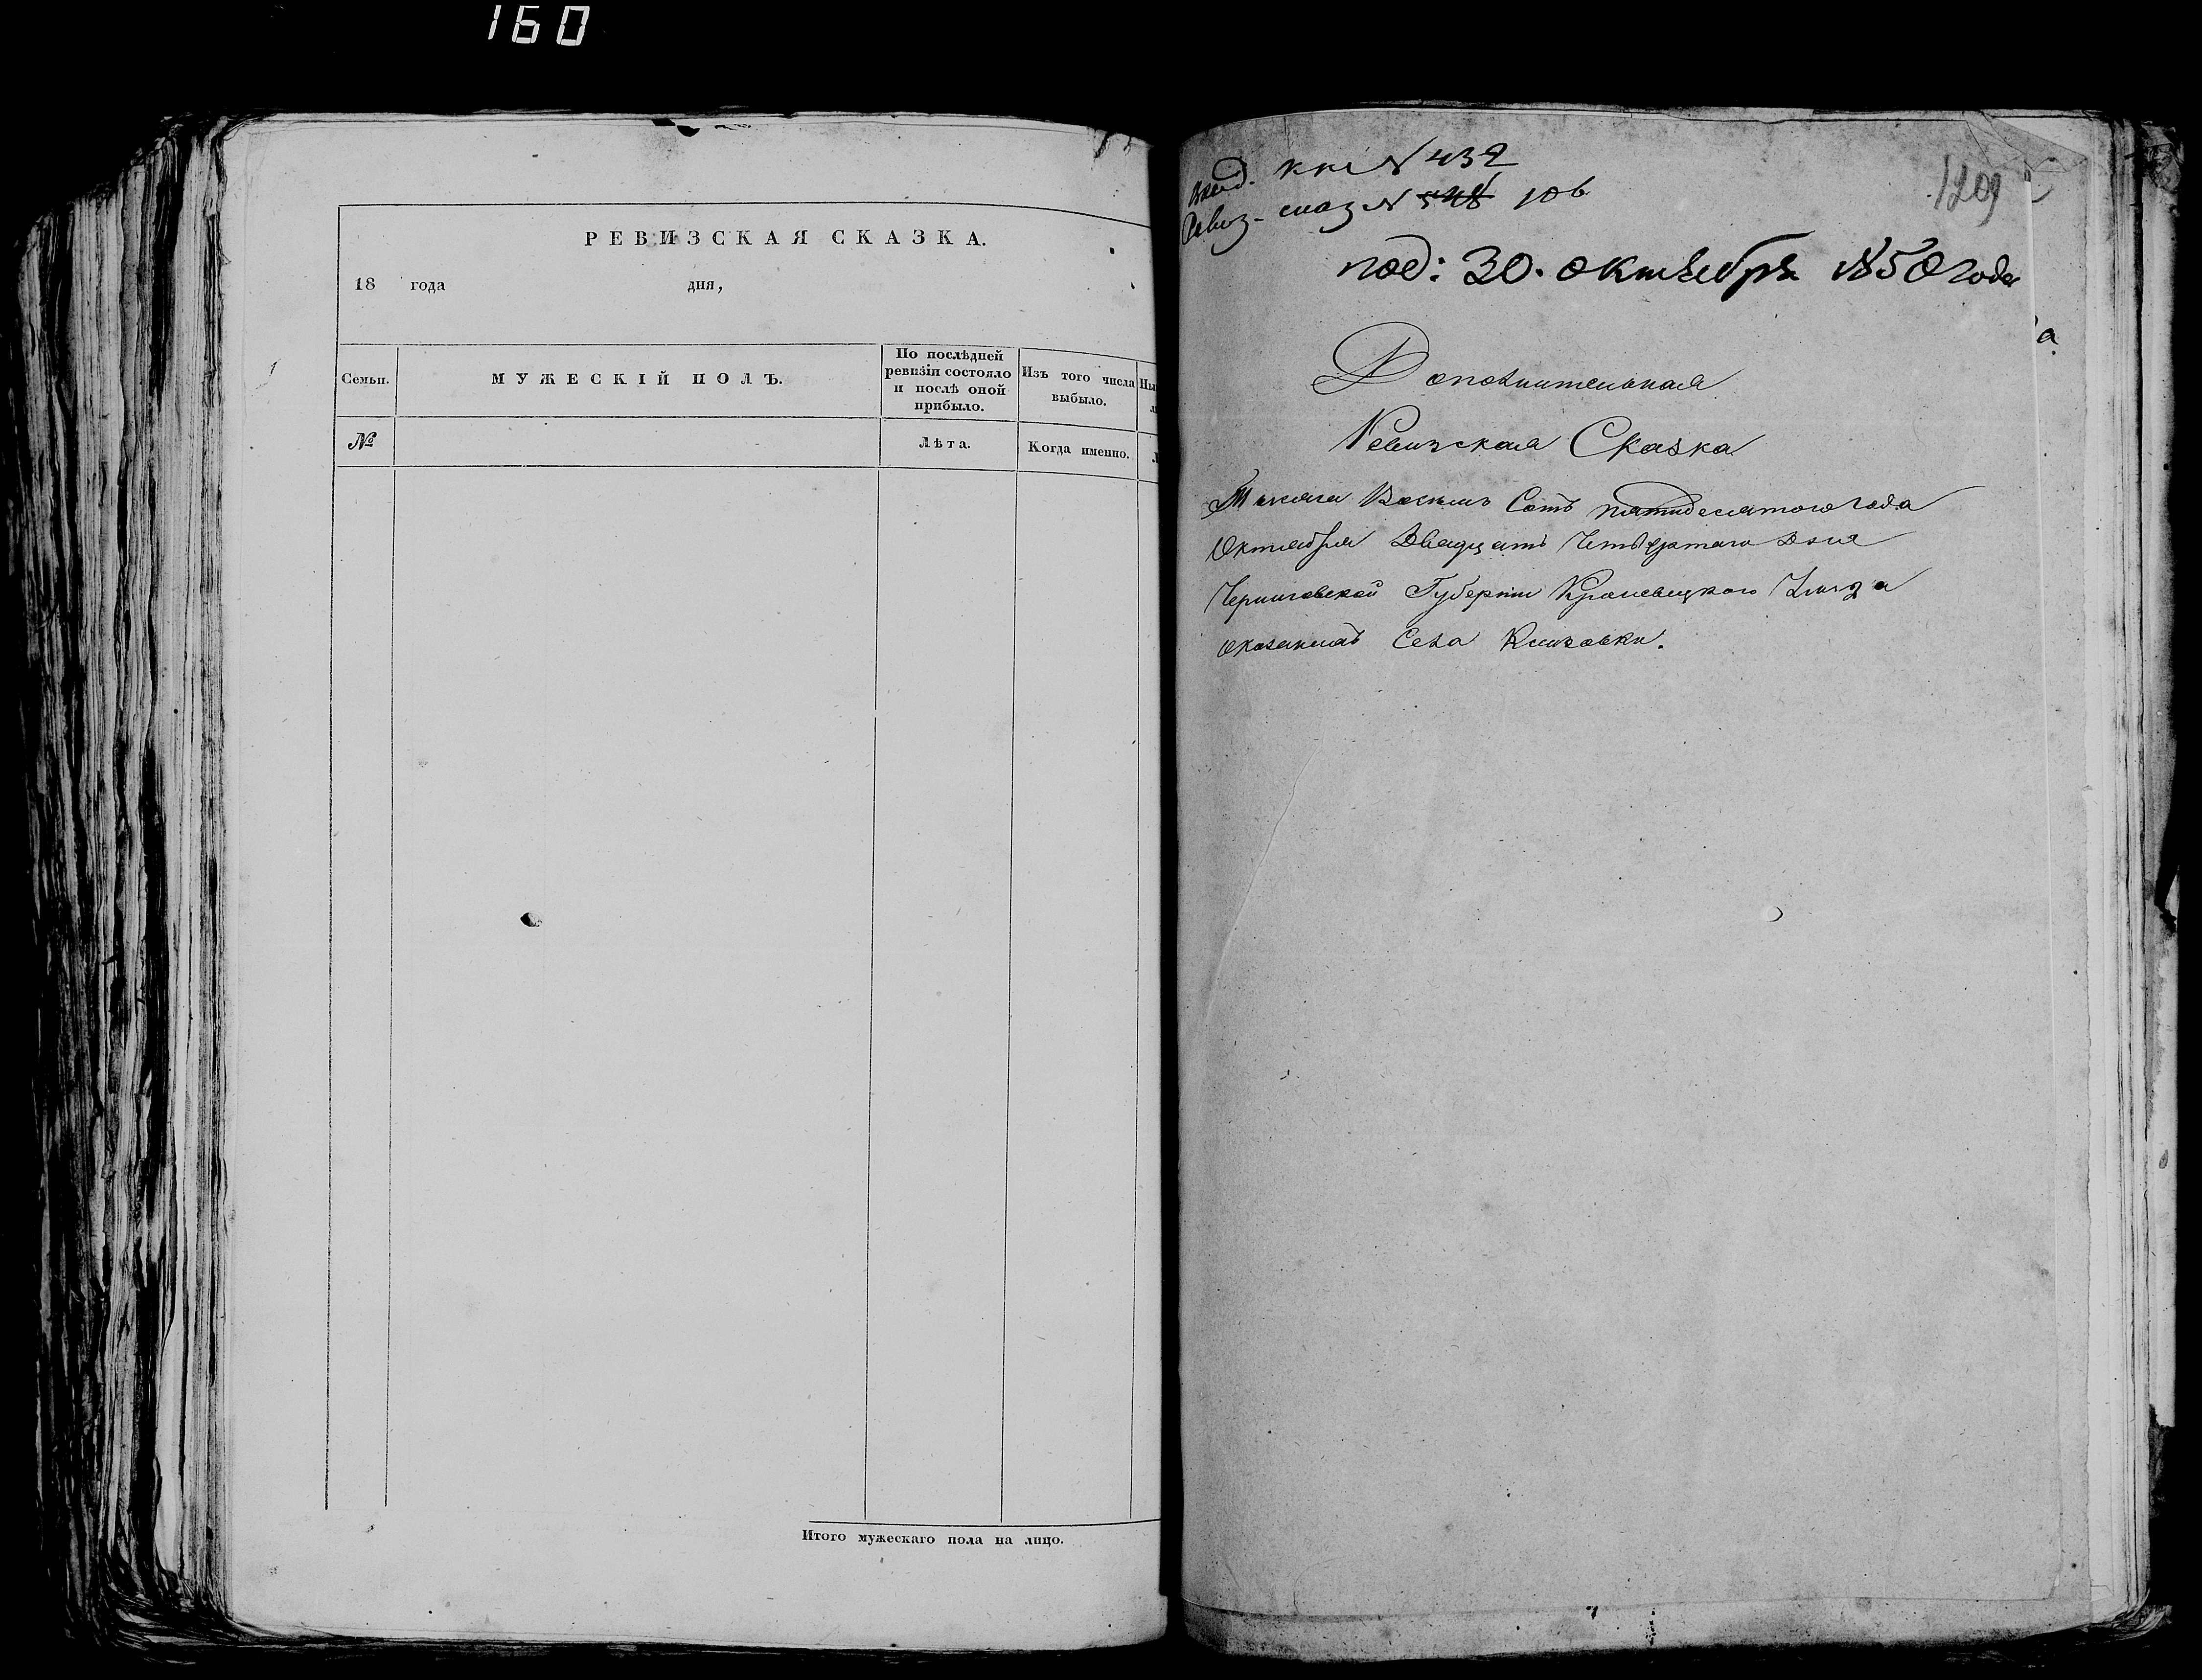 160
РЕВИЗСКАЯ СКАЗКА.
18 года дня,
Семьи.
МУЖЕСКІЙ ПОЛЪ.
По послѣдней
ревизіи состояло
и послѣ оной
прибыло.
Изъ того числа
выбыло.
№
Лѣта.
Когда именно.
Итого мужескаго пола на лицо.
Вход. кни N 432
Ревиз- сказ N 548 106
1209
под: 30. октября 1850 года
Дополнительная
Ревизская Сказка
Тысяча Восемь Сотъ пятидесятого года
Октября Двадцать Четвертаго Дня
Черниговской Губерніи Кролевецкого Уезда
Села